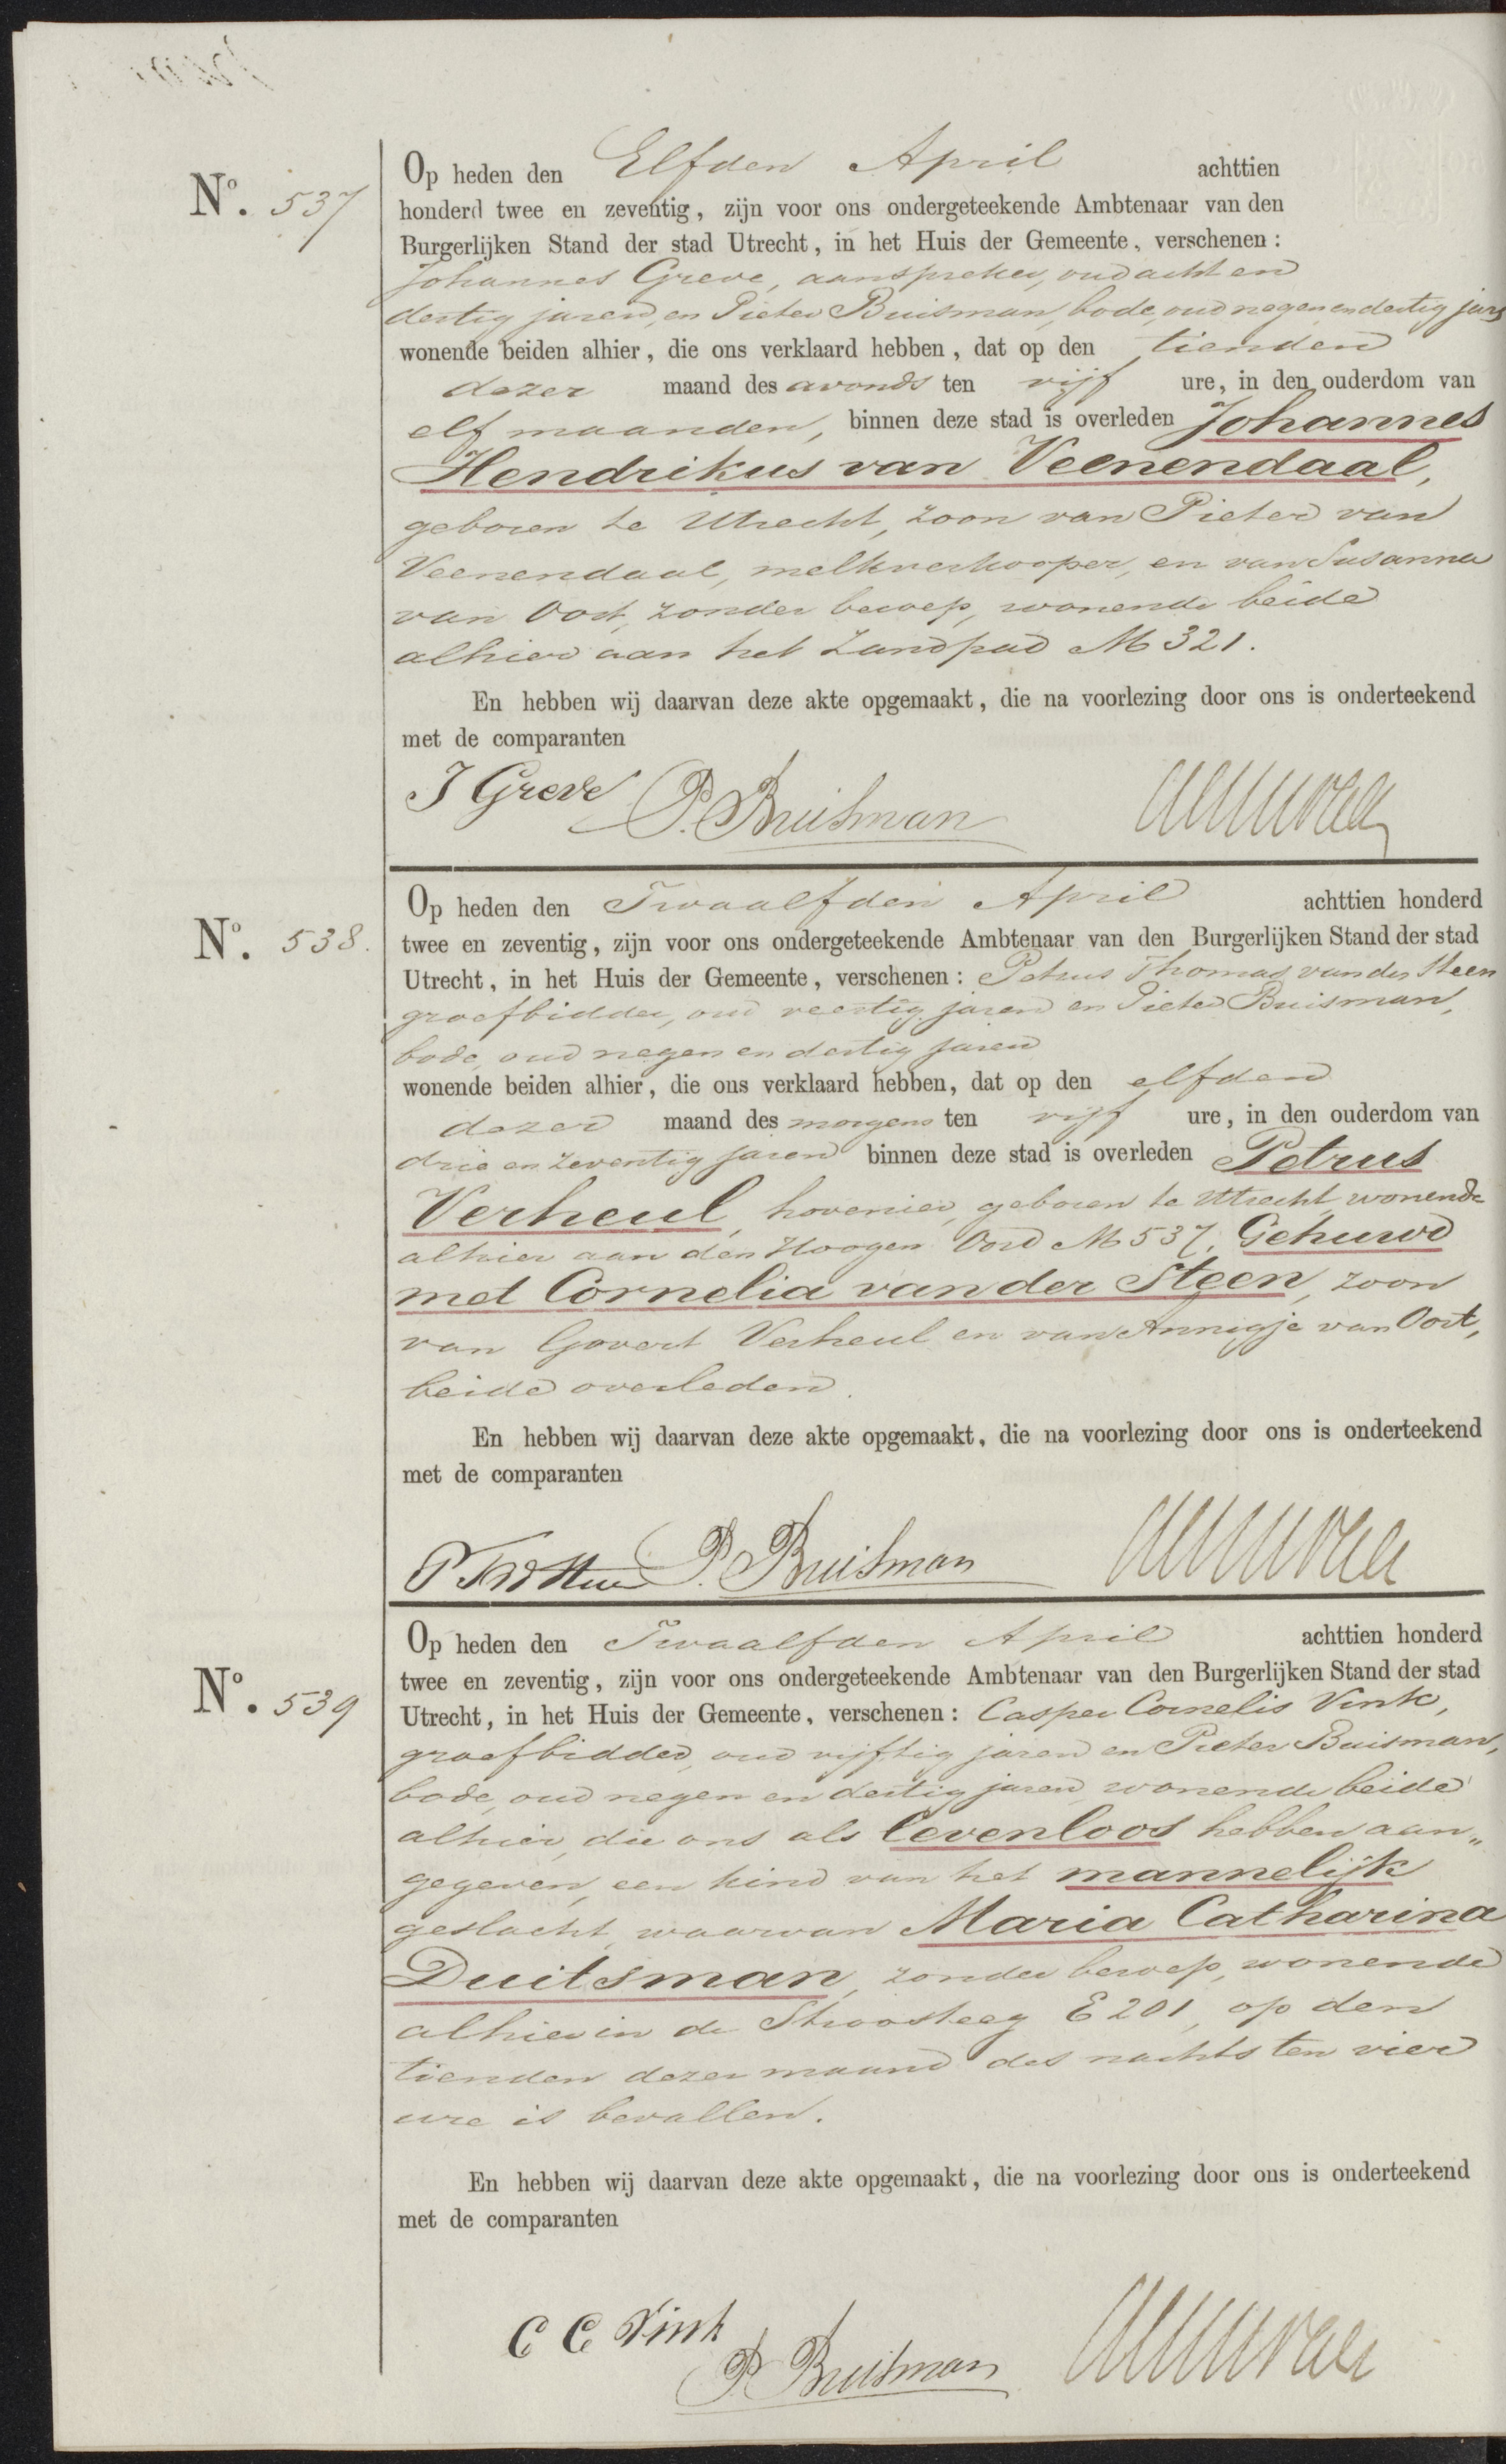 Nº. 537
Op heden den Elfden April achttien
honderd twee en zeventig, zijn voor ons ondergeteekende Ambtenaar van den
Burgerlijken Stand der stad Utrecht, in het Huis der Gemeente, verschenen:
Johannes Greve, aanspreker, oud acht en
dertig jaren, en Pieter Buisman, bode, oud negen en dertig jaren
wonende beiden alhier, die ons verklaard hebben, dat op den tienden
dezer maand des avonds ten vijf ure, in den ouderdom van
elf maanden, binnen deze stad is overleden Johannes
Hendrikus van Veenendaal,
geboren te Utrecht, zoon van Pieter van
Veenendaal, melkverkooper, en van Susanna
van Oort, zonder beroep, wonende beide
alhier aan het Zandpad M 321.
En hebben wij daarvan deze akte opgemaakt, die na voorlezing door ons is onderteekend
met de comparanten
J Greve P. Buisman
Nº. 538.
Op heden den Twaalfden April achttien honderd
twee en zeventig, zijn voor ons ondergeteekende Ambtenaar van den Burgerlijken Stand der stad
Utrecht, in het Huis der Gemeente, verschenen: Petrus Thomas van der Steen
groefbidder, oud veertig jaren en Pieter Buisman,
bode, oud negen en dertig jaren
wonende beiden alhier, die ons verklaard hebben, dat op den elfden
dezer maand des morgens ten vijf ure, in den ouderdom van
drie en zeventig jaren binnen deze stad is overleden Petrus
Verheul, hovenier, geboren te Utrecht, wonende
alhier aan den Hoogen Oord M 537, Gehuwd
met Cornelia van der Steen, zoon
van Govert Verheul en van Annigje van Oort,
beide overleden.
En hebben wij daarvan deze akte opgemaakt, die na voorlezing door ons is onderteekend
met de comparanten
P. Buisman
Nº. 539
Op heden den Twaalfden April achttien honderd
twee en zeventig, zijn voor ons ondergeteekende Ambtenaar van den Burgerlijken Stand der stad
Utrecht, in het Huis der Gemeente, verschenen: Casper Cornelis Vink,
groefbidder, oud vijftig jaren en Pieter Buisman,
bode, oud negen en dertig jaren, wonende beide
alhier, die ons als levenloos hebben aan„
gegeven, een kind van het mannelijk
geslacht, waarvan Maria Catharina
Duitsman, zonder beroep, wonende
alhier in de Stroosteeg E 201, op den
tienden dezer maand des nachts ten vier
ure is bevallen.
En hebben wij daarvan deze akte opgemaakt, die na voorlezing door ons is onderteekend
met de comparanten
C C Vink
P. Buisman